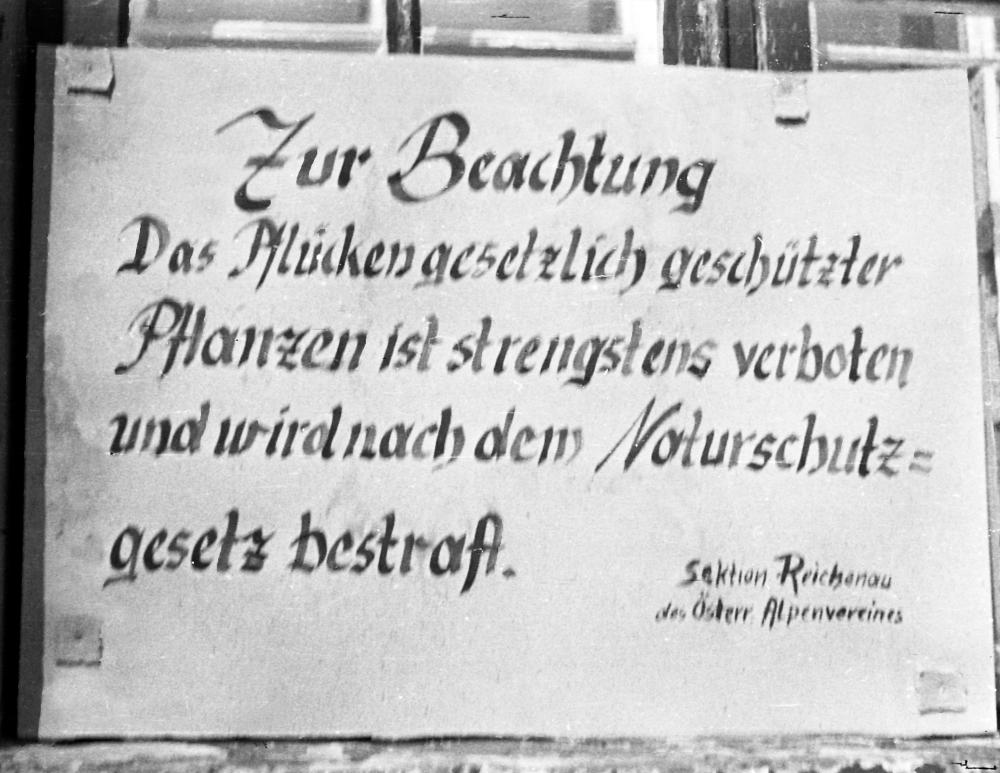 Zur Beachtung
Das Pflücken gesetzlich geschützter
Pflanzen ist strengstens verboten
und wird nach dem Naturschutz=
gesetz bestraft.
Sektion Reichenau
des Österr. Alpenvereines